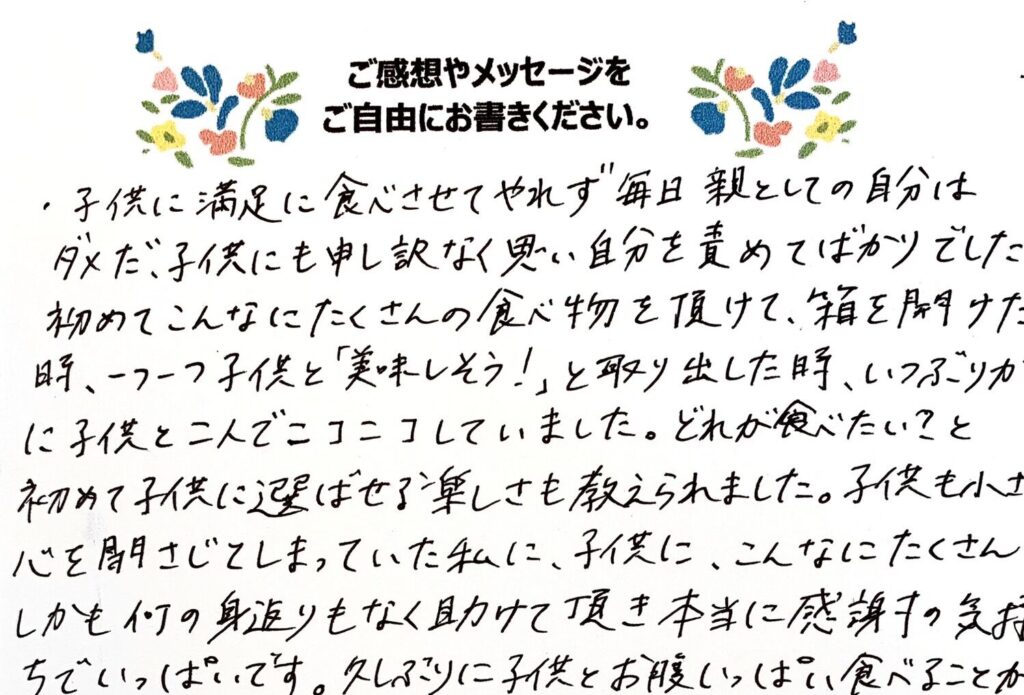 ご感想やメッセージを
ご自由にお書きください。
・子供に満足に食べさせてやれず毎日親としての自分は
ダメだ、子供にも申し訳なく思い自分を責めてばかりでした
初めてこんなにたくさんの食べ物を頂けて、箱を開けた
時、一つ一つ子供と「美味しそう!」と取り出した時、いつぶりか
に子供と二人でニコニコしていました。どれが食べたい?と
初めて子供に選ばせる楽しさも教えられました。子供も小さ
心を閉さじてしまっていた私に、子供に、こんなにたくさん
しかも何の身返りもなく助けて頂き本当に感謝すの気持
ちでいっぱいです。久しぶりに子供とお腹いっぱい食べることが